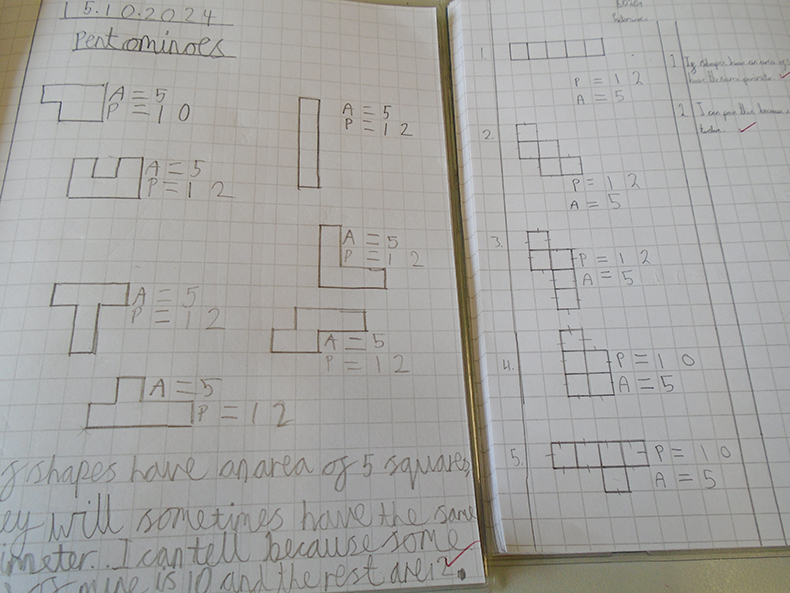 15.10.2024
Pentominoes
A = 5
P = 10
A = 5
P = 12
A = 5
P = 12
A = 5
P = 12
A = 5
P = 12
A = 5
P = 12
A = 5
P = 12
shapes have an area of 5 squares,
ey will sometimes have the same
imeter. I can tell because some
mine is 10 and the rest are 12.
1.
P = 12
A = 5
2.
P = 12
A = 5
3.
P = 12
A = 5
4.
P = 10
A = 5
5.
P = 10
A = 5
1 If shapes have an area of
have the same
2 I can